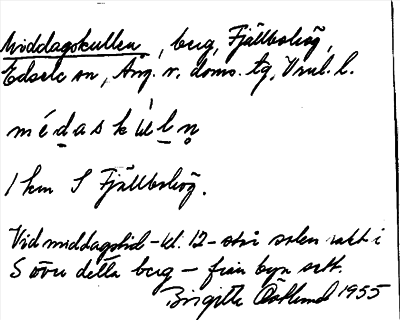 Middagskullen, berg, Fjällbohög,
Edsele sn, Ång. v. doms. tg, Vnrl. l.
médaskúln
1 km S Fjällbohög.
Vid middagstid - kl. 12 - står solen rakt i
S över detta berg - från byn sett.
Birgitta Östlund 1955